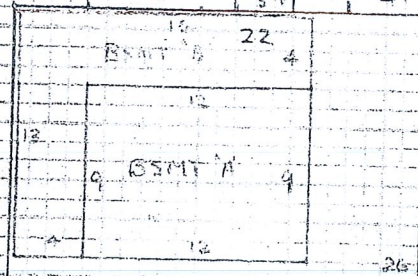 22
BSMT 'B' 4
12
13
9 BSMT 'A' 9
4 12
26